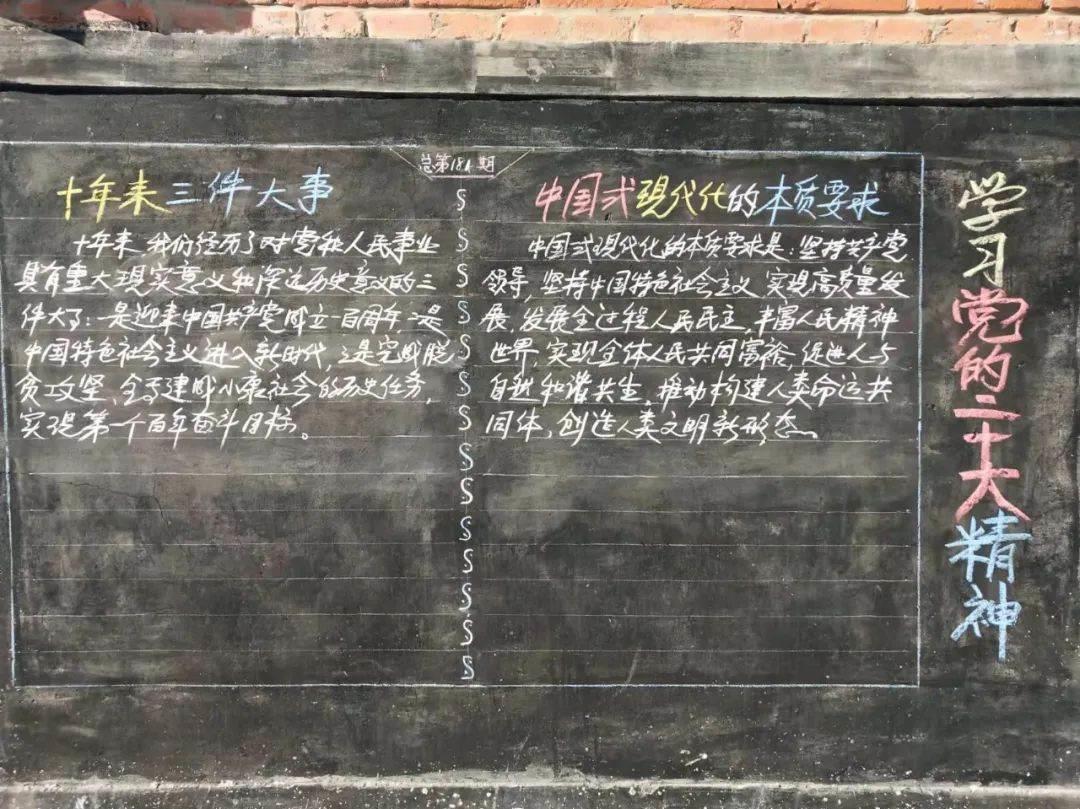 总第期
十年来三件大事
十年来 我们经历了对党和人民事业
具有重大现实意义和深远历史意义的三
件大事:一是迎来中国共产党成立一百周年,二是
中国特色社会主义进入新时代,三是完成脱
贫攻坚、全面建成小康社会的历史任务,
实现第一个百年奋斗目标。
中国式现代化的本质要求
中国式现代化的本质要求是:坚持共产党
领导,坚持中国特色社会主义,实现高质量发
展,发展全过程人民民主,丰富人民精神
世界,实现全体人民共同富裕,促进人与
自然和谐共生,推动构建人类命运共
同体,创造人类文明新形态。
学习党的二十大精神